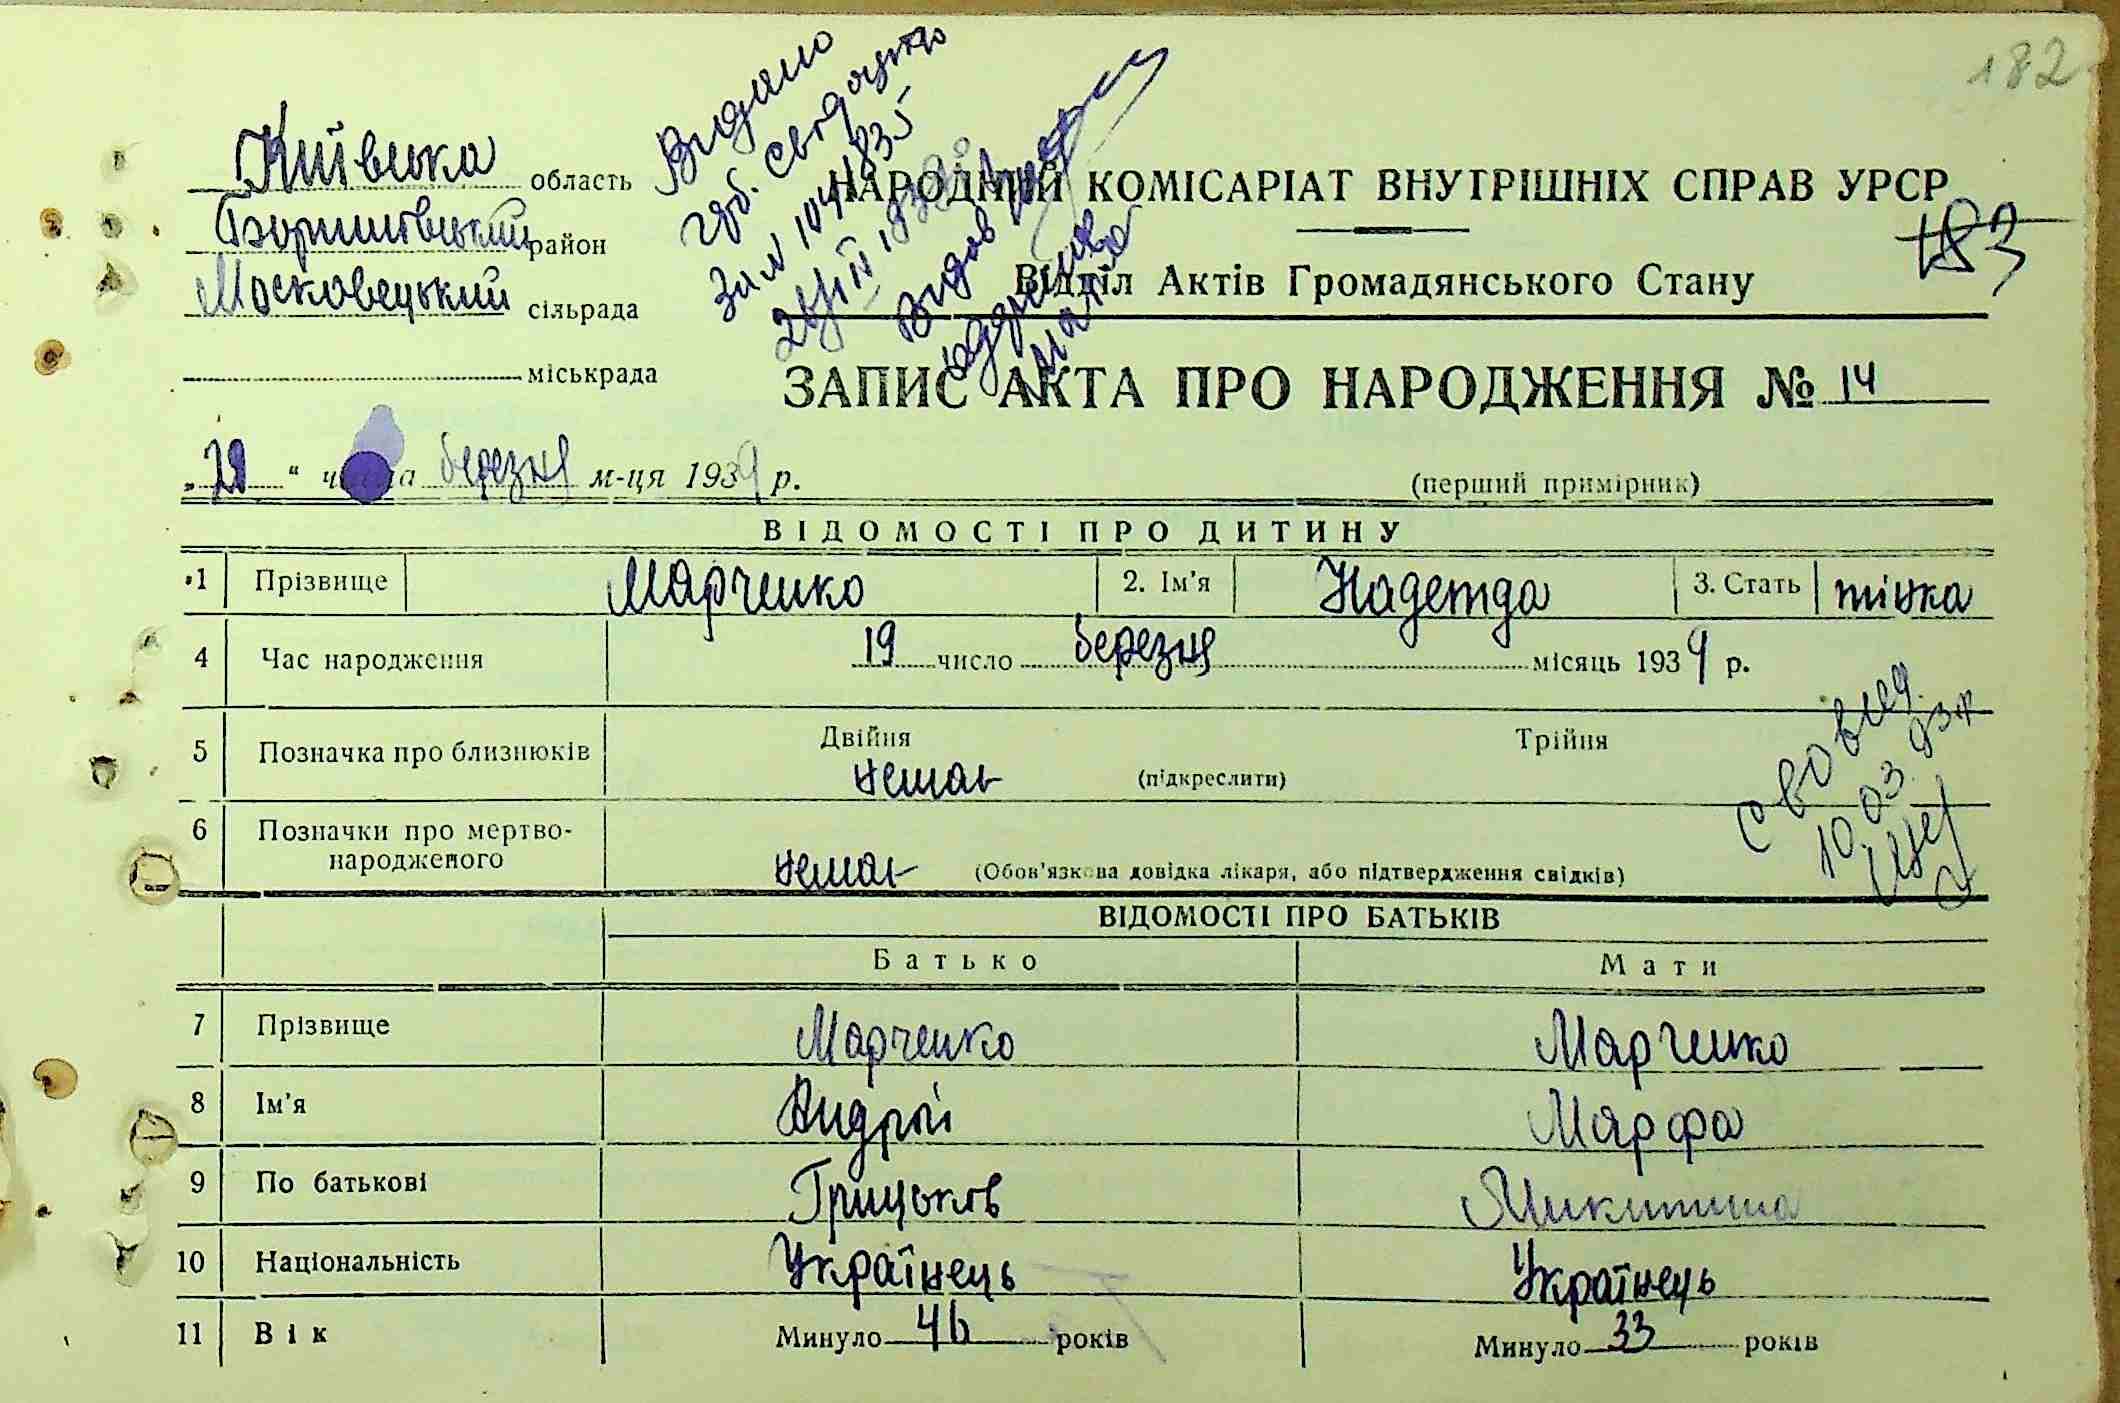 182
Київська область
Боришпівський район
Московецький сільрада
міськрада
Видано
Зам 1044835
Видав
НАРОДНИЙ КОМІСАРІАТ ВНУТРІШНІХ СПРАВ УРСР
183
Відділ Актів Громадянського Стану
ЗАПИС АКТА ПРО НАРОДЖЕННЯ № 14
„ 28 “ числа березня м-ця 1939 р.
(перший примірник)
ВІДОМОСТІ ПРО ДИТИНУ
1 Прізвище Марченко 2. Ім'я Надежда 3. Стать жінка
4 Час народження 19 число березня місяць 1939 р.
5 Позначка про близнюків Двійня Трійня
немає (підкреслити)
6 Позначки про мертво-
народженого немає (Обов'язкова довідка лікаря, або підтвердження свідків)
10.03.
ВІДОМОСТІ ПРО БАТЬКІВ
Батько Мати
7 Прізвище Марченко Марченко
8 Ім'я Андрій Марфа
9 По батькові Грицьків Микитина
10 Національність Українець Українець
11 Вік Минуло 46 років Минуло 33 років